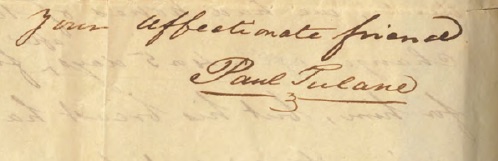 Your affectionate friend
Paul Tulane